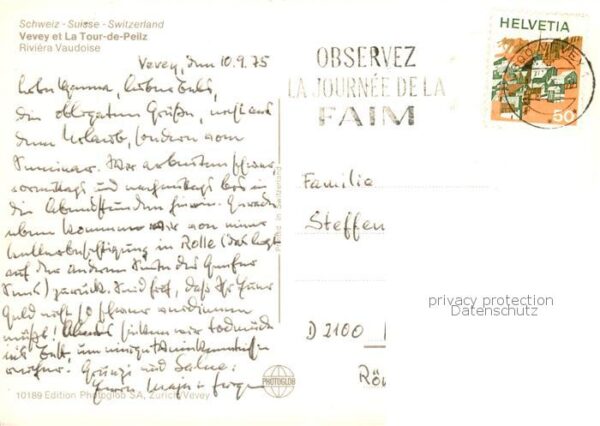 Schweiz - Suisse - Switzerland
Vevey et La Tour-de-Peilz
Riviéra Vaudoise
Vevey, den 10.9.75
die obligaten Grüße, nicht aus
dem Urlaub, sondern vom
Seminar. Wir arbeiten schwer
vormittags und nachmittags bis in
die Abendstunden hinein. Gerade
eben kommen wir von einer
in Rolle (das liegt
auf der anderen Seite des Genfer
Sees) zurück. Seid froh, daß Ihr Euer
Geld nicht so schwer verdienen
müßt! Abends sinken wir todmüde
ins Bett, um
Grüezi und Salue:
Eure
10189 Edition Photoglob SA, Zürich/Vevey
PHOTOGLOB
Printed in Switzerland
OBSERVEZ
LA JOURNÉE DE LA
FAIM
HELVETIA
50
VEVEY
Familie
Steffen
D 2100
privacy protection
Datenschutz